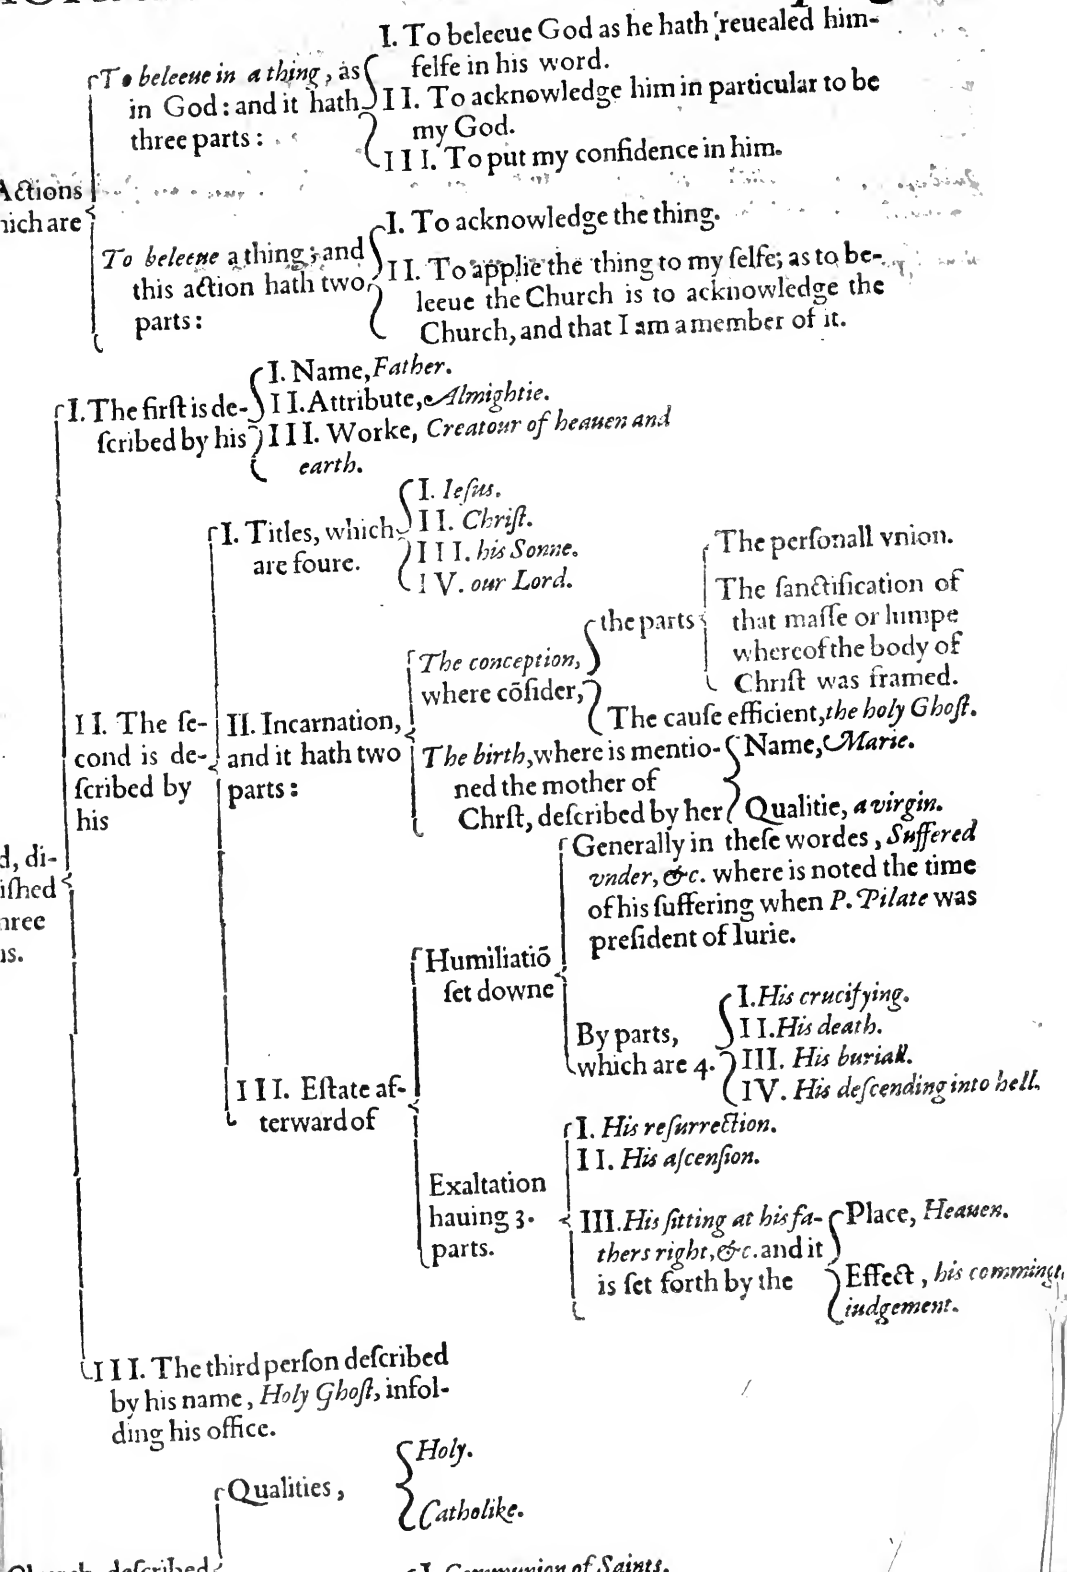 I. To beleeue God as he hath reuealed him-
ſelfe in his word.
To beleeue in a thing, as
in God: and it hath
three parts:
II. To acknowledge him in particular to be
my God.
III. To put my confidence in him.
Actions
which are
I. To acknowledge the thing.
To beleeue a thing; and
this action hath two
parts:
II. To applie the thing to my ſelfe; as to be-
leeue the Church is to acknowledge the
Church, and that I am a member of it.
I. The firſt is de-
ſcribed by his
I. Name, Father.
II. Attribute, Almightie.
III. Worke, Creatour of heauen and
earth.
I. Titles, which
are foure.
I. Ieſus.
II. Chriſt.
III. his Sonne.
IV. our Lord.
II. The ſe-
cond is de-
ſcribed by
his
II. Incarnation,
and it hath two
parts:
The conception,
where cōſider,
the parts
The perſonall vnion.
The ſanctification of
that maſſe or lumpe
whereof the body of
Chriſt was framed.
The cauſe efficient, the holy Ghoſt.
The birth, where is mentio-
ned the mother of
Chrſt, deſcribed by her
Name, Marie.
Qualitie, a virgin.
d, di-
iſhed
hree
ns.
III. Eſtate af-
terward of
Humiliatiō
ſet downe
Generally in theſe wordes, Suffered
vnder, &c. where is noted the time
of his ſuffering when P. Pilate was
preſident of Iurie.
By parts,
which are 4.
I. His crucifying.
II. His death.
III. His buriall.
IV. His deſcending into hell.
Exaltation
hauing 3.
parts.
I. His reſurrection.
II. His aſcenſion.
III. His ſitting at his fa-
thers right, &c. and it
is ſet forth by the
Place, Heauen.
Effect, his comming t
iudgement.
III. The third perſon deſcribed
by his name, Holy Ghoſt, infol-
ding his office.
Qualities,
Holy.
Catholike.
Church, deſcribed
I. Communion of Saints.